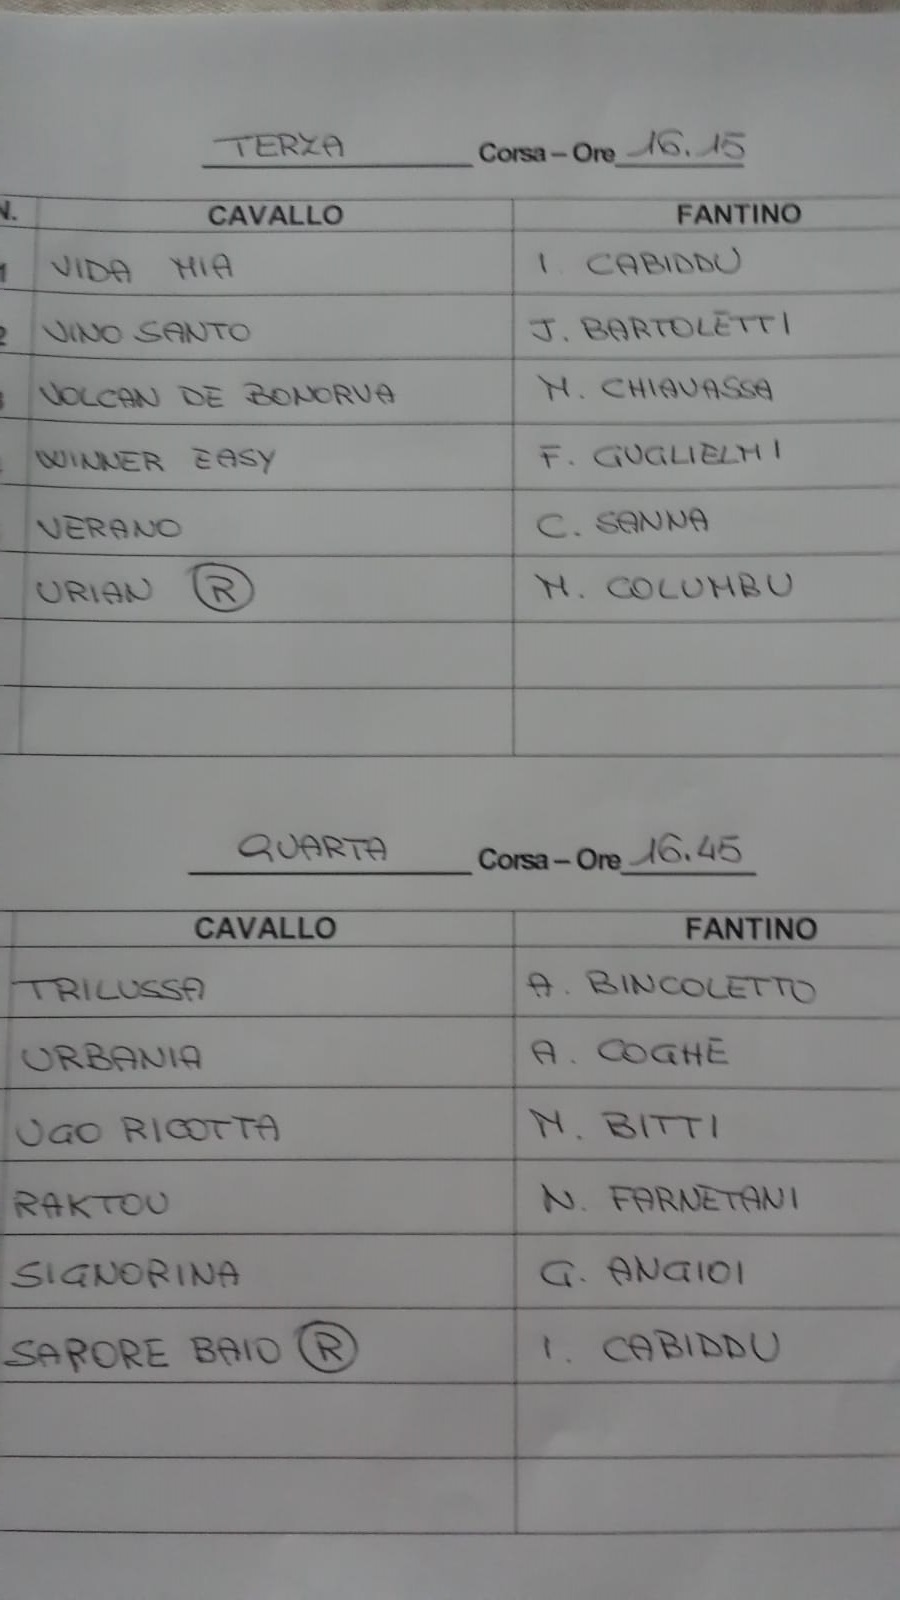 TERZA Corsa – Ore 16.15
N. CAVALLO FANTINO
1 VIDA MIA I. CABIDDU
2 VINO SANTO J. BARTOLETTI
VOLCAN DE BONORVA M. CHIAVASSA
WINNER EASY F. GUGLIELMI
VERANO C. SANNA
URIAN R M. COLUMBU
QUARTA Corsa – Ore 16.45
CAVALLO FANTINO
TRILUSSA A. BINCOLETTO
URBANIA A. COGHE
UGO RICOTTA M. BITTI
RAKTOU N. FARNETANI
SIGNORINA G. ANGIOI
SAPORE BAIO R I. CABIDDU